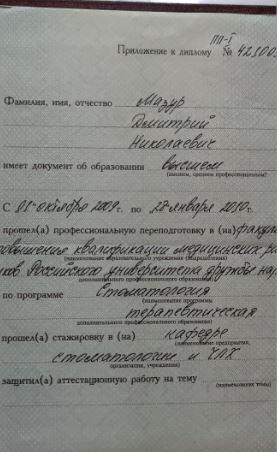 ПП-I
Приложение к диплому № 421003
Фамилия, имя, отчество Мазур
Дмитрий
Николаевич
имеет документ об образовании высшем
(высшем, среднем профессиональном)
С 01 октября 2009г. по 28 января 2010г.
прошел(а) профессиональную переподготовку в (на)
повышения квалификации медицинских
Российского университета дружбы
(наименование образовательного учреждения (подразделения)
дополнительного профессионального образования)
по программе Стоматология
(наименование программы
терапевтическая
дополнительного профессионального образования)
прошел(а) стажировку в (на) кафедре
(наименование предприятия,
стоматологии и ЧЛХ
организации, учреждения)
защитил(а) аттестационную работу на тему
(наименование темы)